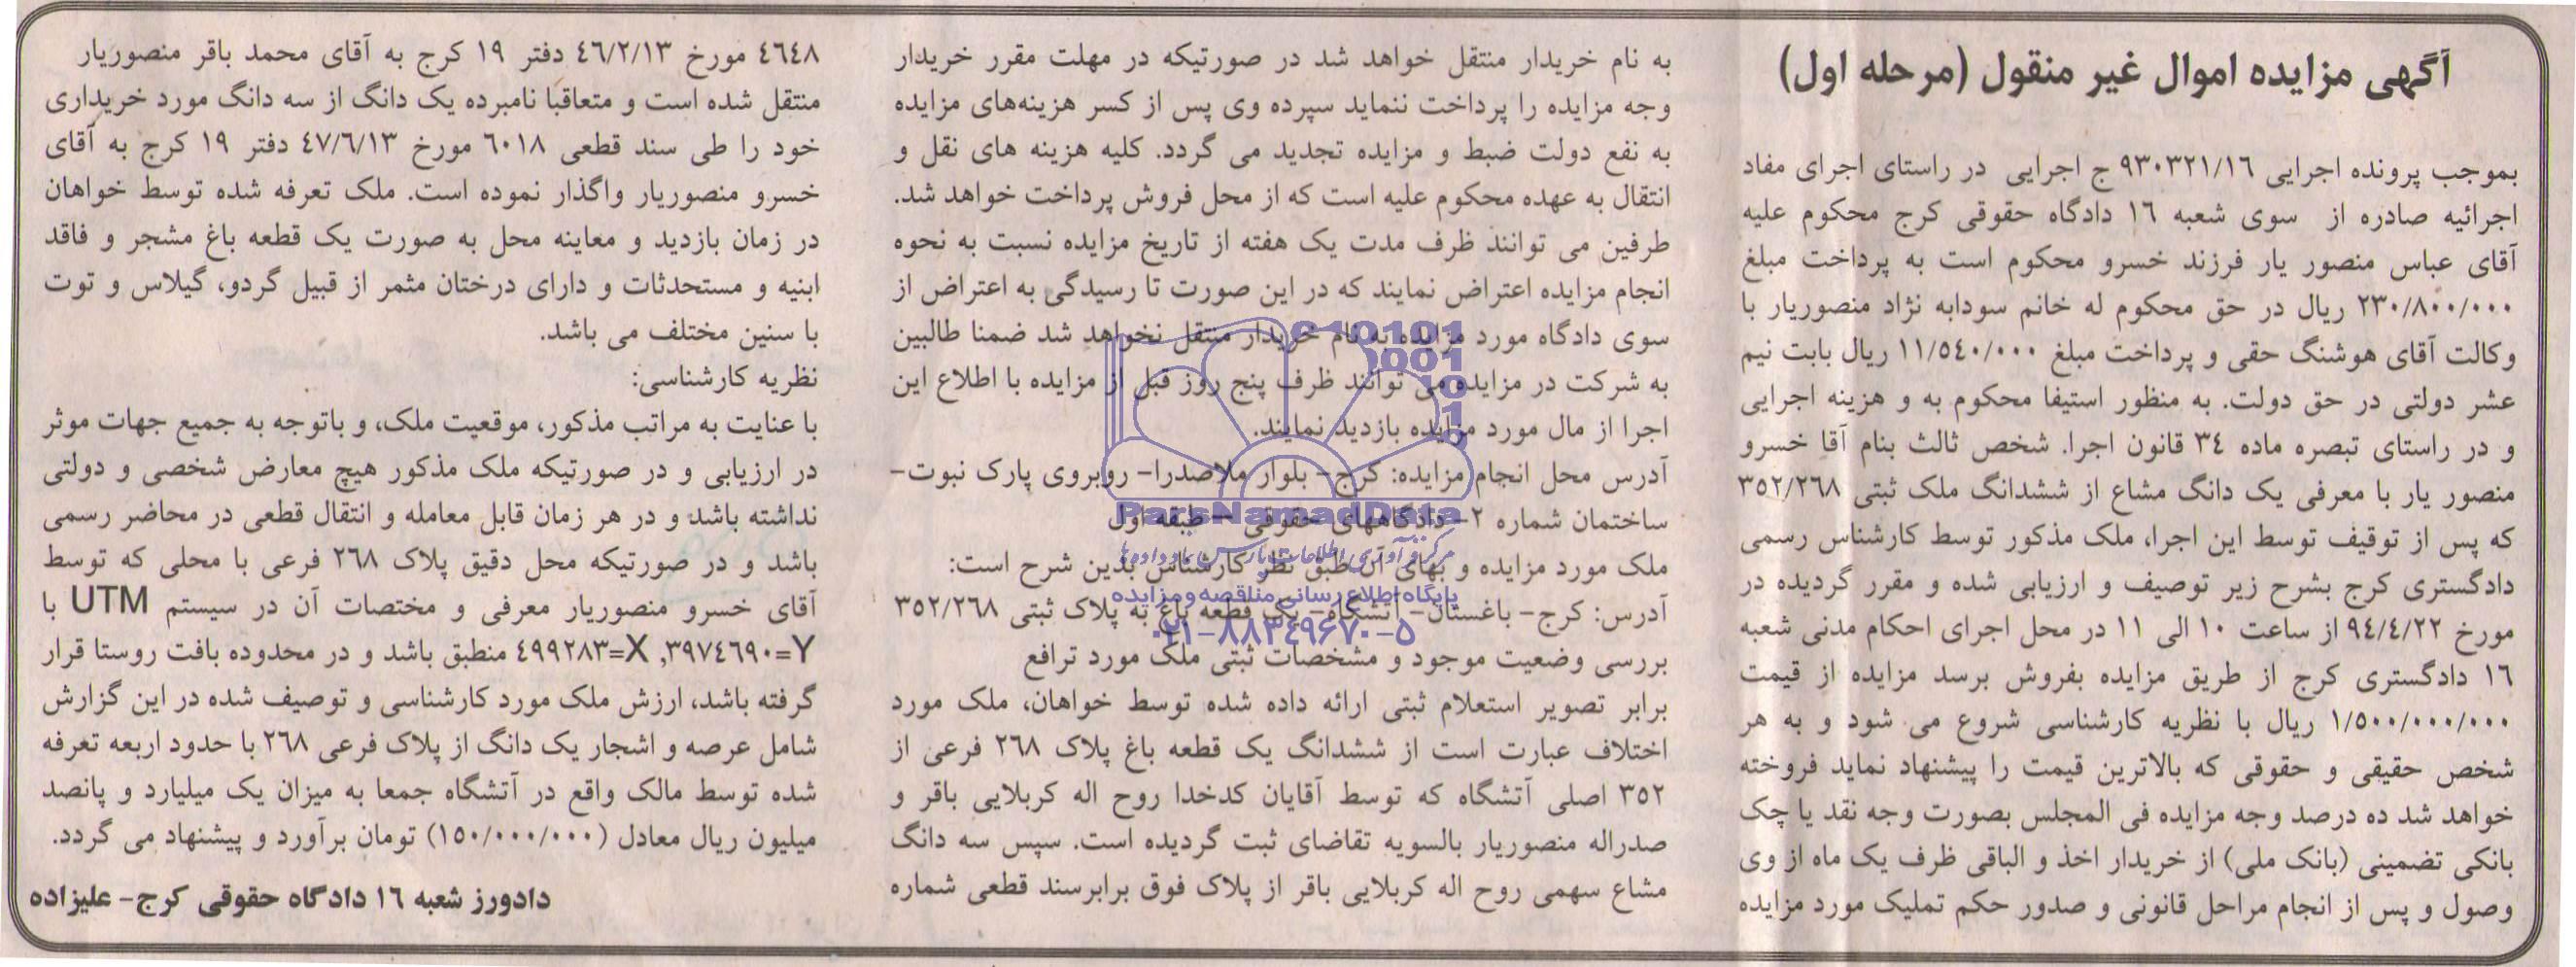 آگهی مزایده اموال غیر منقول (مرحله اول)
بموجب پرونده اجرایی ۹۳۰۳۲۱/۱۶ ج اجرایی در راستای اجرای مفاد
اجرائیه صادره از سوی شعبه ۱۶ دادگاه حقوقی کرج محکوم علیه
آقای عباس منصور یار فرزند خسرو محکوم است به پرداخت مبلغ
۲۳۰/۸۰۰/۰۰۰ ریال در حق محکوم له خانم سودابه نژاد منصوریار با
وکالت آقای هوشنگ حقی و پرداخت مبلغ ۱۱/۵۴۰/۰۰۰ ریال بابت نیم
عشر دولتی در حق دولت. به منظور استیفا محکوم به و هزینه اجرایی
و در راستای تبصره ماده ۳۴ قانون اجرا. شخص ثالث بنام آقا خسرو
منصور یار با معرفی یک دانگ مشاع از ششدانگ ملک ثبتی ۳۵۲/۲۶۸
که پس از توقیف توسط این اجرا، ملک مذکور توسط کارشناس رسمی
دادگستری کرج بشرح زیر توصیف و ارزیابی شده و مقرر گردیده در
مورخ ۹۴/۴/۲۲ از ساعت ۱۰ الی ۱۱ در محل اجرای احکام مدنی شعبه
۱۶ دادگستری کرج از طریق مزایده بفروش برسد مزایده از قیمت
۱/۵۰۰/۰۰۰/۰۰۰ ریال با نظریه کارشناسی شروع می شود و به هر
شخص حقیقی و حقوقی که بالاترین قیمت را پیشنهاد نماید فروخته
خواهد شد ده درصد وجه مزایده فی المجلس بصورت وجه نقد یا چک
بانکی تضمینی (بانک ملی) از خریدار اخذ و الباقی ظرف یک ماه از وی
وصول و پس از انجام مراحل قانونی و صدور حکم تملیک مورد مزایده
به نام خریدار منتقل خواهد شد در صورتیکه در مهلت مقرر خریدار
وجه مزایده را پرداخت ننماید سپرده وی پس از کسر هزینه‌های مزایده
به نفع دولت ضبط و مزایده تجدید می گردد. کلیه هزینه های نقل و
انتقال به عهده محکوم علیه است که از محل فروش پرداخت خواهد شد.
طرفین می توانند ظرف مدت یک هفته از تاریخ مزایده نسبت به نحوه
انجام مزایده اعتراض نمایند که در این صورت تا رسیدگی به اعتراض از
سوی دادگاه مورد مزایده به نام خریدار منتقل نخواهد شد ضمنا طالبین
به شرکت در مزایده می توانند ظرف پنج روز قبل از مزایده با اطلاع این
اجرا از مال مورد مزایده بازدید نمایند.
آدرس محل انجام مزایده: کرج- بلوار ملاصدرا- روبروی پارک نبوت-
ساختمان شماره ۲- دادگاههای حقوقی - طبقه اول
ملک مورد مزایده و بهای آن طبق نظر کارشناس بدین شرح است:
آدرس: کرج- باغستان- آتشگاه- یک قطعه باغ به پلاک ثبتی ۳۵۲/۲۶۸
بررسی وضعیت موجود و مشخصات ثبتی ملک مورد ترافع
برابر تصویر استعلام ثبتی ارائه داده شده توسط خواهان، ملک مورد
اختلاف عبارت است از ششدانگ یک قطعه باغ پلاک ۲۶۸ فرعی از
۳۵۲ اصلی آتشگاه که توسط آقایان کدخدا روح اله کربلایی باقر و
صدراله منصوریار بالسویه تقاضای ثبت گردیده است. سپس سه دانگ
مشاع سهمی روح اله کربلایی باقر از پلاک فوق برابرسند قطعی شماره
۴۶۴۸ مورخ ۴۶/۲/۱۳ دفتر ۱۹ کرج به آقای محمد باقر منصوریار
منتقل شده است و متعاقبا نامبرده یک دانگ از سه دانگ مورد خریداری
خود را طی سند قطعی ۶۰۱۸ مورخ ۴۷/۶/۱۳ دفتر ۱۹ کرج به آقای
خسرو منصوریار واگذار نموده است. ملک تعرفه شده توسط خواهان
در زمان بازدید و معاینه محل به صورت یک قطعه باغ مشجر و فاقد
ابنیه و مستحدثات و دارای درختان مثمر از قبیل گردو، گیلاس و توت
با سنین مختلف می باشد.
نظریه کارشناسی:
با عنایت به مراتب مذکور، موقعیت ملک، و باتوجه به جمیع جهات موثر
در ارزیابی و در صورتیکه ملک مذکور هیچ معارض شخصی و دولتی
نداشته باشد و در هر زمان قابل معامله و انتقال قطعی در محاضر رسمی
باشد و در صورتیکه محل دقیق پلاک ۲۶۸ فرعی با محلی که توسط
آقای خسرو منصوریار معرفی و مختصات آن در سیستم UTM با
Y=۳۹۷۴۶۹۰, X=۴۹۹۲۸۳ منطبق باشد و در محدوده بافت روستا قرار
گرفته باشد، ارزش ملک مورد کارشناسی و توصیف شده در این گزارش
شامل عرصه و اشجار یک دانگ از پلاک فرعی ۲۶۸ با حدود اربعه تعرفه
شده توسط مالک واقع در آتشگاه جمعا به میزان یک میلیارد و پانصد
میلیون ریال معادل (۱۵۰/۰۰۰/۰۰۰) تومان برآورد و پیشنهاد می گردد.
دادورز شعبه ۱۶ دادگاه حقوقی کرج- علیزاده
ParsNamadData
مرکز فرآوری اطلاعات پارس نماد داده‌ها
پایگاه اطلاع رسانی مناقصه و مزایده
۰۲۱-۸۸۳۴۹۶۷۰-۵